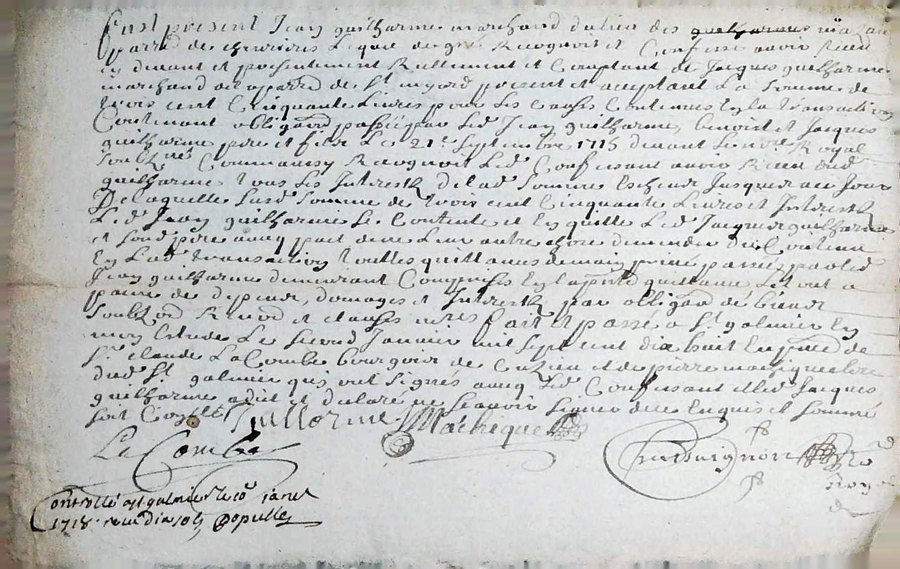 Fust présent Jean guilharme marchand du lieu des guilharmes
parre de chevrieres Lequel de gré Recognoit et Confesse avoir receu
cy devant et présentement Reellement et Comptant de Jacques guilharme
marchand de la parre de St myard présent et aceptant La Somme de
trois cent Cinquante Livres pour les causes Contenues en la transaction
Contenant obligaõn passée par Led Jean guilharme, benoist et Jacques
guilharme pere et fils Le 21e Septembre 1715 devant Le nore Royal
Soubzné Commaussy Recognoit Led Confessant avoir Receu dud
guilharme tous les Interestz de lad Somme Escheus Jusques au Jour
De laquelle susd Somme de trois cent Cinquante Livres et Interestz
Led Jean guilharme Se Contente et En quitte Led Jacques guilharme
et sond pere avec pact de ne Leur autre chose demander du Contenu
En Lad transaction toutes quittances demain privé passées par Led
Jean guilharme demeurant Comprises En la pnte quittance Le tout a
paine de despens, domages et Interestz par obligaõn de biens
Soubzon Renonõn et clauses fait et passé a St galmier En
mon Estude Le Second Janvier mil sept cent dix huit En pnce de
Sr claude LaCombe bourgois de Cuzieu et de pierre
dud St galmier qui ont signés avec Led Confessant et led Jacques
guilharme a dit et declaré ne Scavoir signer de ce Enquis et Sommé
Guillerme Macheque
La Combe
Ro
Roy
Controllé a St galmier le janer
1718 receu dix sols Populle